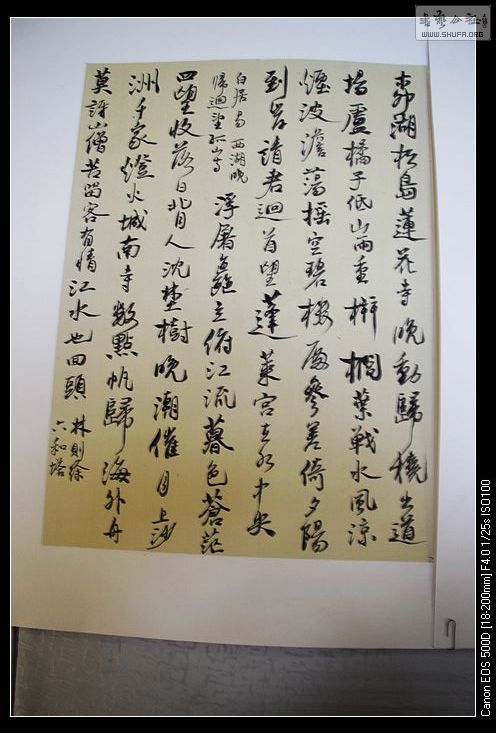 柳湖松島蓮花寺晚動歸橈出道
場盧橘子低山雨重栟櫚葉戰水風涼
煙波澹蕩搖空碧樓殿參差倚夕陽
到岸請君迴首望蓬萊宮在水中央
白居易西湖晚
歸迴望孤山寺
浮屠矗立俯江流暮色蒼茫
四望收落日背人沈埜樹晚潮催月上沙
洲千家燈火城南寺數點帆歸海外舟
莫訝山僧苦留客有情江水也回頭
林則徐
六和塔
書藝公社
WWW.SHUFA.ORG
Canon EOS 500D [18-200mm] F4.0 1/25s ISO100